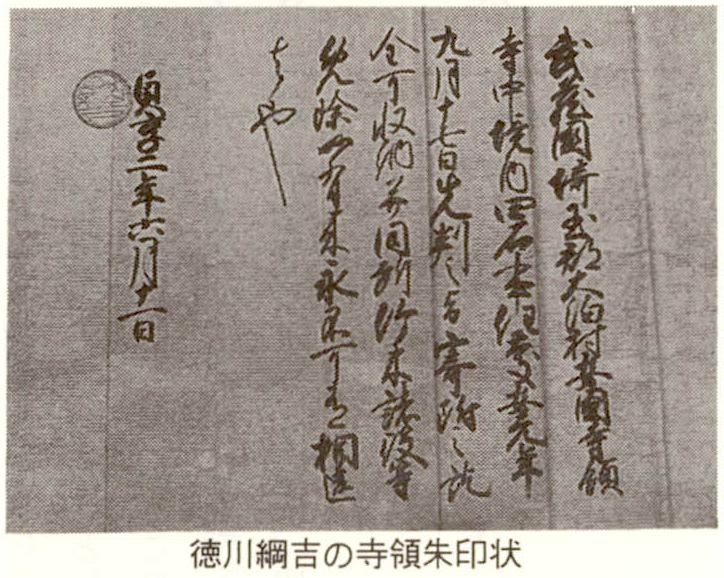 武蔵国埼玉郡大泊村安国寺領
寺中境内四石事任慶安元年
九月十七日先判之旨寄附之訖
全可収納并同所竹木諸役等
免除如有来永不可有相違
者也
貞享二年六月十一日
徳川綱吉の寺領朱印状